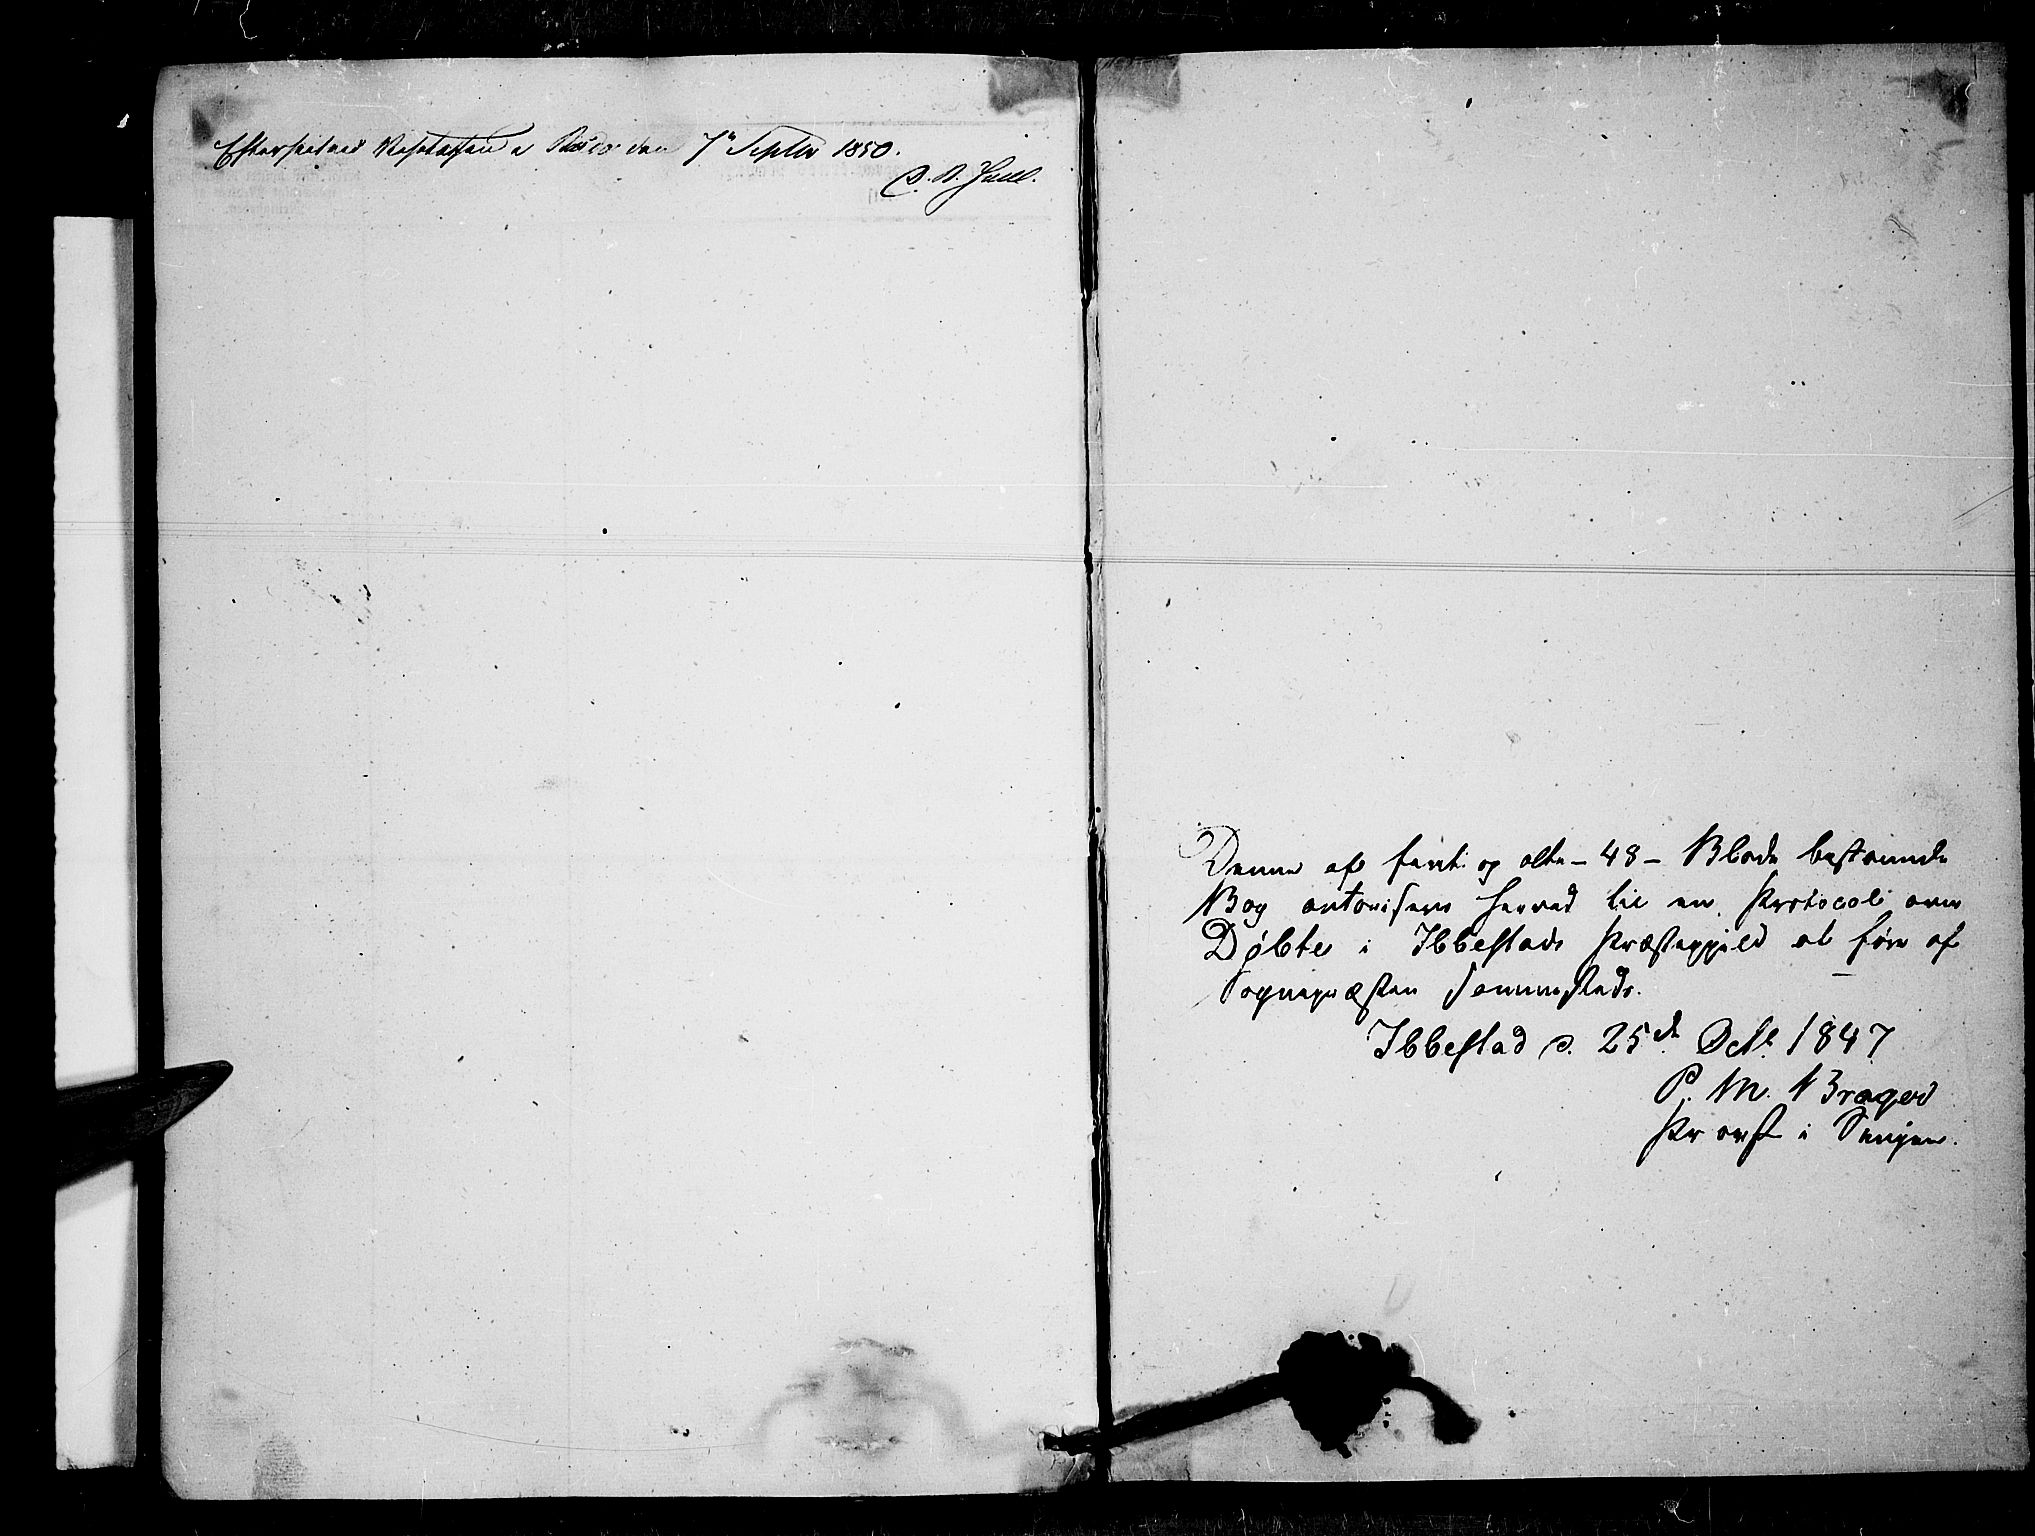 Efterseet ved Visitatsen den 7de Septbr 1850.
D. B. Juell.
Denne af førti og otte – 48 – Blade bestaaende
Bog autoriseres herved til en Protocol over
Døbte i Ibbestads Præstegjeld at føre af
Sognepræsten Sommerfeldt.
Ibbestad d. 25de Octb. 1847
P. M. Brager
Provst i Senjen.